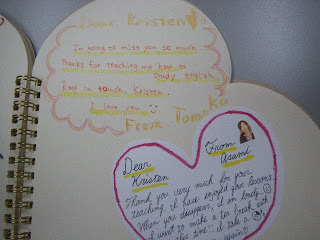 Dear Kristen
I'm going to miss you so much.
Thanks for teaching me how to
study English.
Keep in touch, Kristen.
I love you
From Tomoko
Dear
Kristen
From
Asami
Thank you very much for your
teaching. I have enjoyed your lessons.
When you disappear, I am lonely
I want to make a tea break with
this time. I talk to
again